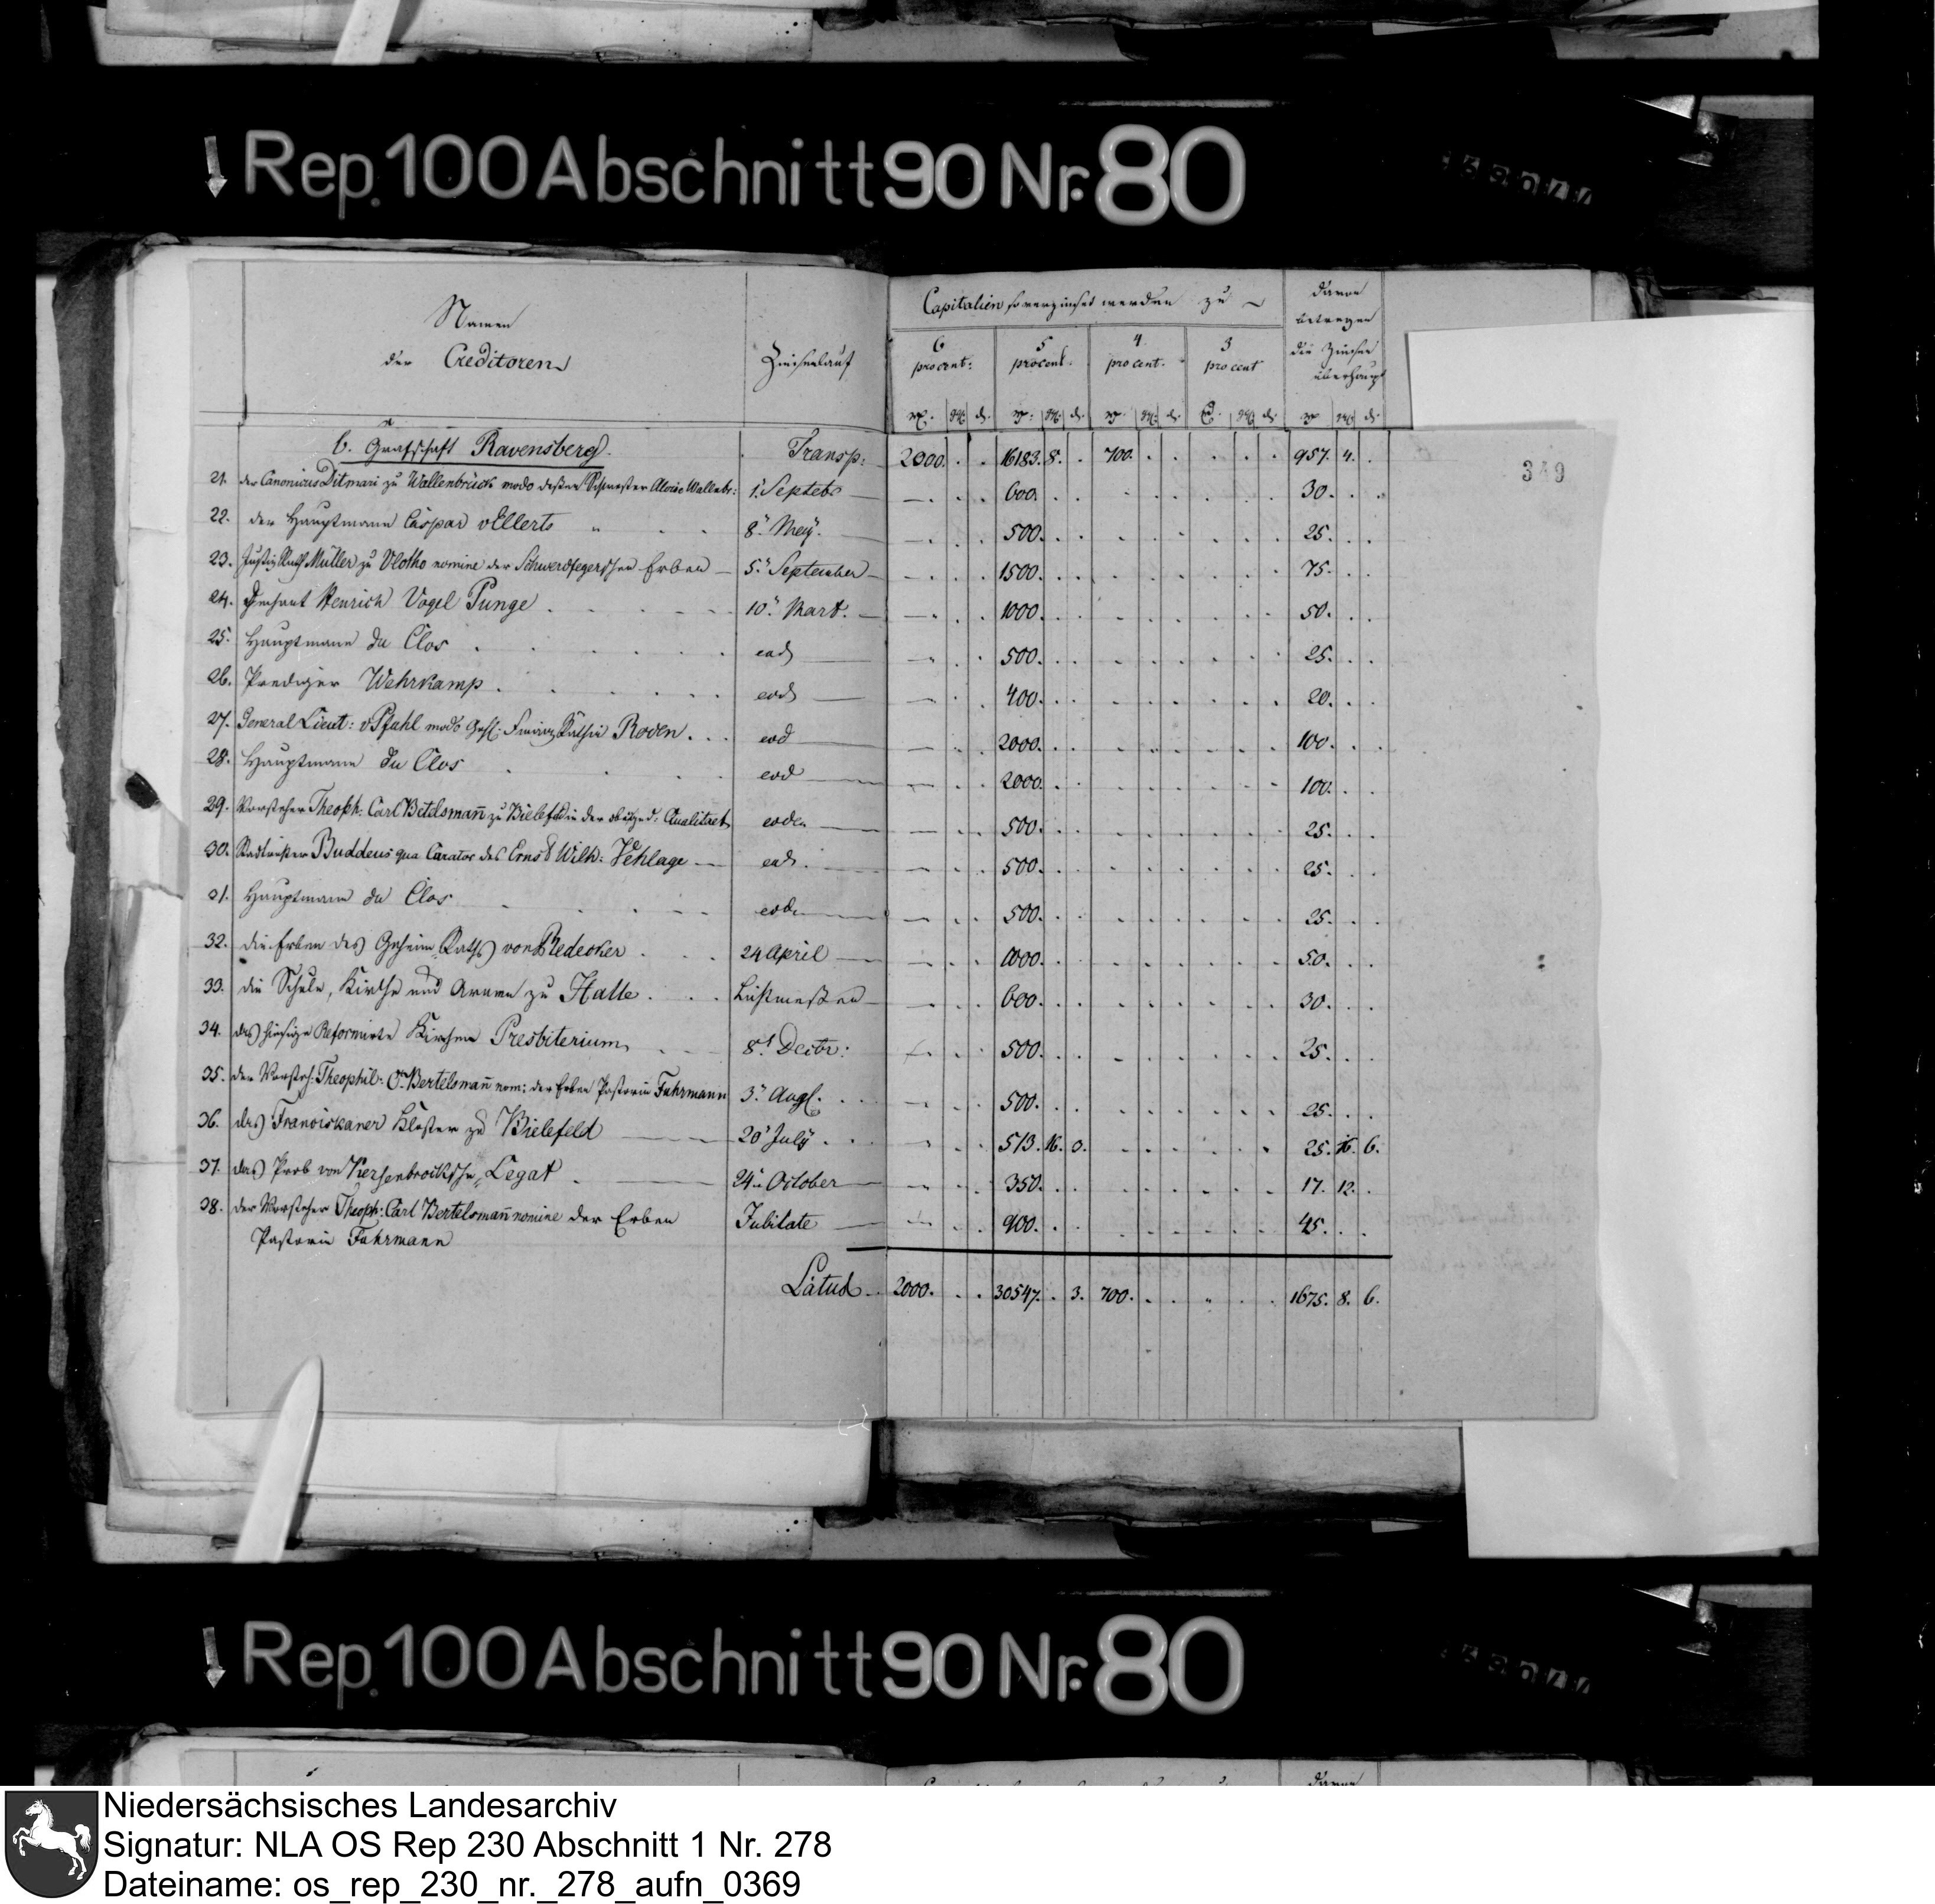 Rep. 100 Abschnitt 90 Nr. 80
Namen
der Creditoren
Zinsenlauf
Capitalien so verzinset werden zu
6 procent:
5 procent.
4 procent.
3 procent
davon
betragen
die Zinsen
überhaupt
6. Grafschaft Ravensberg. Transp: 2000. . . 16183. 8. . 700. . . . . . 957. 4. .
349
21. der Canonicus Ditmari zu Wallenbrück modo deßen Schwester Aloise Wallenbr: 1. Septebr 600. 30.
22. der Hauptmann Caspar v Ellerts 8. Mey. 500. 25.
23. Justiz Rath Müller zu Vlotho nomine der Schwerdfegerschen Erben 5. September 1500. 75.
24. Henrich Vogel Punge 10. Mart. 1000. 50.
25. Hauptmann du Clos eod 500. 25.
26. Prediger Wehrkamp eod 400. 20.
27. General Lieut: v Pfuhl modo Räthin Roden eod 2000. 100.
28. Hauptmann du Clos eod 2000. 100.
29. Vorsteher Theoph. Carl Betelsmañ zu Bielefeld in der Qualitaet eoden 500. 25.
30. Buddeus qua Curator des Ernst Wilh. Vehlage eod. 500. 25.
31. Hauptmann du Clos eoden 500. 25.
32. die Erben des Geheim Raths von Redecker 24 April 1000. 50.
33. die Schule, Kirche und Armen zu Halle Lichtmeßen 600. 30.
34. das hiesige Reformirte Kirchen Presbiterium 8. Decbr: 500. 25.
35. der Vorsteh. Theophil. C. Bertelsmañ nom: der Erben Pastorin Fuhrmann 3. Aug. 500. 25.
36. das Franciskaner Kloster zu Bielefeld 20. July 513. 16. 3. 25. 16. 6.
37. das Prob von Kersenbrocksche Legat 24. October 350. 17. 12.
38. der Vorsteher Theoph: Carl Bertelsmañ nomine der Erben Jubilate 900. 45.
Pastorin Fuhrmann
Latus 2000. . . 30547. . 3. 700. . . . . . 1675. 8. 6.
Rep. 100 Abschnitt 90 Nr. 80
Niedersächsisches Landesarchiv
Signatur: NLA OS Rep 230 Abschnitt 1 Nr. 278
Dateiname: os_rep_230_nr._278_aufn_0369